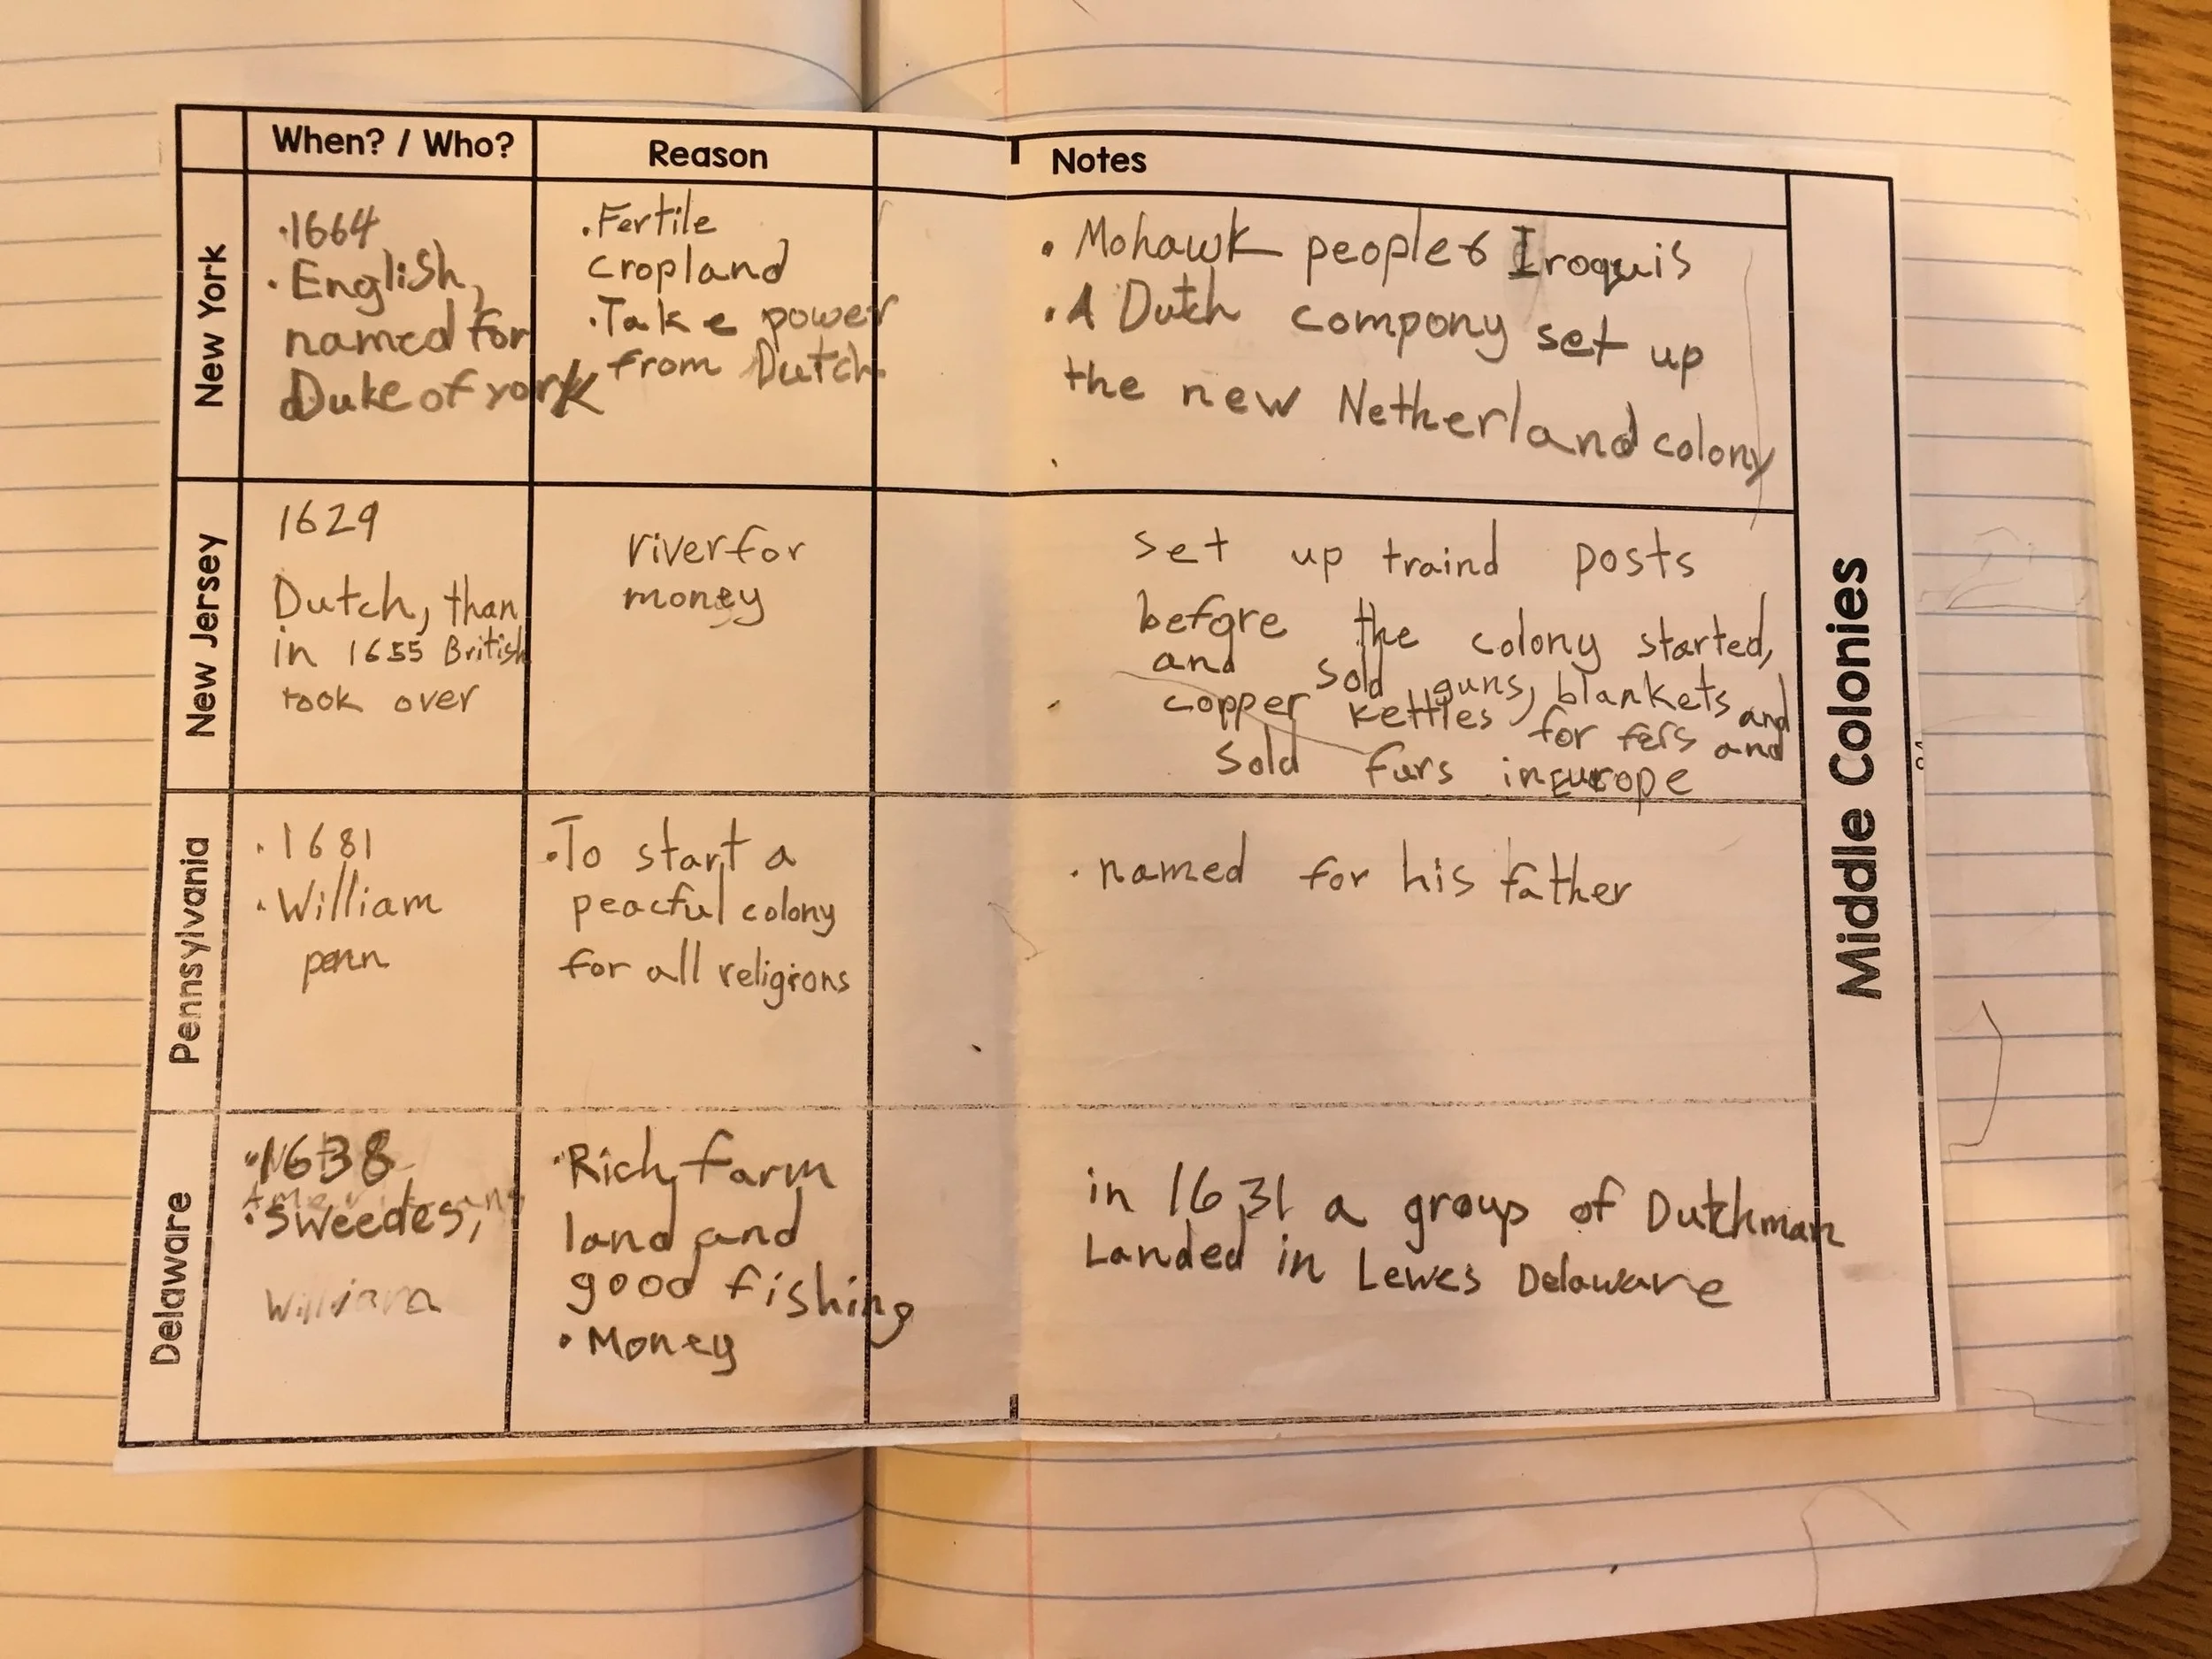 When? / Who?
Reason
Notes
Middle Colonies
New York
·1664
· English,
named for
Duke of york
·Fertile
cropland
·Take power
from Dutch.
· Mohawk people & Iroquis
· A Dutch compony set up
the new Netherland colony
New Jersey
1629
Dutch, than
in 1655 British
took over
river for
money
set up traind posts
before the colony started,
and sold guns, blankets and
copper kettles for fers and
sold furs in Europe
Pennsylvania
· 1681
· William
penn
·To start a
peacful colony
for all religions
· named for his father
Delaware
·1638
·sweedes,
·Rich farm
land and
good fishing
· Money
in 1631 a group of Dutchman
Landed in Lewes Delaware